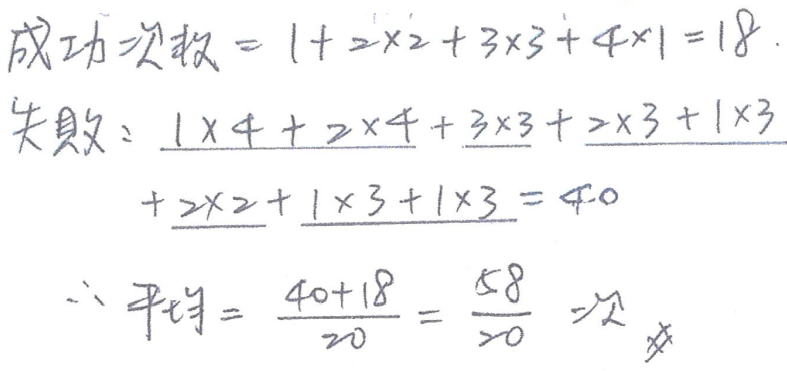 成功次数 = 1+2×2+3×3+4×1=18.
失敗: 1×4+2×4+3×3+2×3+1×3
+2×2+1×3+1×3=40
∴ 平均= \frac{40+18}{20} = \frac{58}{20} 次